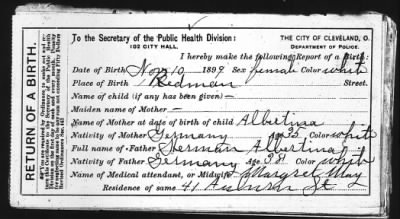 RETURN OF A BIRTH.
To the Secretary of the Public Health Division:
102 CITY HALL.
THE CITY OF CLEVELAND, O.
DEPARTMENT OF POLICE.
I hereby make the following Report of a Birth:
Date of Birth Nov 10 1899 Sex female Color white
Place of Birth Redman Street.
Name of child (if any has been given) -
Maiden name of Mother -
Name of Mother at date of birth of child Albertina
Nativity of Mother Germany Age 35 Color white
Full name of Father Herman Albertina
Nativity of Father Germany Age 38 Color white
Name of Medical attendant, or Midwife Margret May
Residence of same 41 St